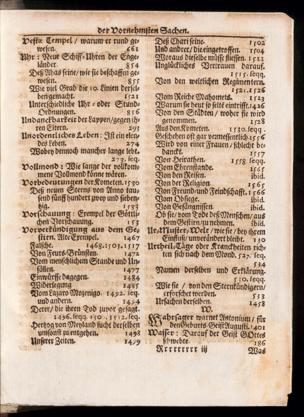 der Vornehmsten Sachen.
Vestæ Tempel / warum er rund gewesen. 661
Uhr: Neue Schiff-Uhren der Engeländer. 854
Des Ahas seine / wie sie beschaffen gewesen. 855
Wie viel Grad die 10. Linien derselben gemacht. 1521
Unterschiedliche Uhr- oder Stund-Ordnungen. 856
Undanckbarkeit der Lappen / gegen ihren Eltern. 293
Unordenliches Leben: Ist ein elendes Leben. 274
Wobey dennoch mancher lange lebt. 273. seq.
Vollmond: Wie lange der vollkommene Vollmond könne wären.
Vorbedeutungen der Kometen. 1530
Des neuen Sterns von Anno tausend fünff hundert zwey und siebenzig. 1538
Vorschauung: Exempel der Göttlichen Vorschauung. 153
Vorverkündigung aus dem Gestirn. Alte Exempel. 1467
Falsche. 1469. 1503. 1517
Von Frucht-Brünsten. 1472
Vom menschlichen Stande und Unfällen. 1477
Einwürffe dagegen. 1484
Widerlegung 1485
Von Lazaro Mozenigo. 1492. seq.
und andern. 1494
Derer / die ihren Tod zuvor gesagt. 1496. seqq.
Hertzog von Meyland sucht derselben umsonst zu entgehen. 1498
Unserer Zeiten. 1499
Des Chart seine. 1502
Und andrer / die eingetroffen. 1504
Woraus dieselbe müsse fliessen. 1521
Unglückliches Vertrauen darauf. 1515. seqq.
Von den weltlichen Regimentern. 1521. 1526
Vom Reiche Mahomets. 1523
Warum sie heut so selten eintrifft. 1526
Von den Städten / woher sie wird genommen. 1528
Aus den Kometen. 1530. seqq.
Geschehen oft gar vermessentlich 1556
Wird von einer Frauen / schlecht bedanckt. 1557
Von Heirathen. 1558. seqq.
Vom Ehrenstande. 1565
Von den Reisen. ibid.
Von der Religion 1565
Von Freund- und Feindschafft. 1566
Vom Obsiege. ibid.
Von Gefängnissen. ibid.
Ob sie / vom Tode des Menschen / aus dem Gestirn / zu nehmen. ibid.
Ur-Muster-Welt / wie sie / bey ihrem Einfluß / unverändert bleibe. 130
534
Namen derselben und Erklärung. 530. seqq.
Wie sie / von den Sternkündigern / erforschet werden. 553
Ursachen derselben 1458
W.
Wahrsager warnet Antonium / für den Geburts-Geist Augusti. 1401
Wasser: Darauf der Geist Gottes schwebte. 186
Rrrrrrrr iij
Was